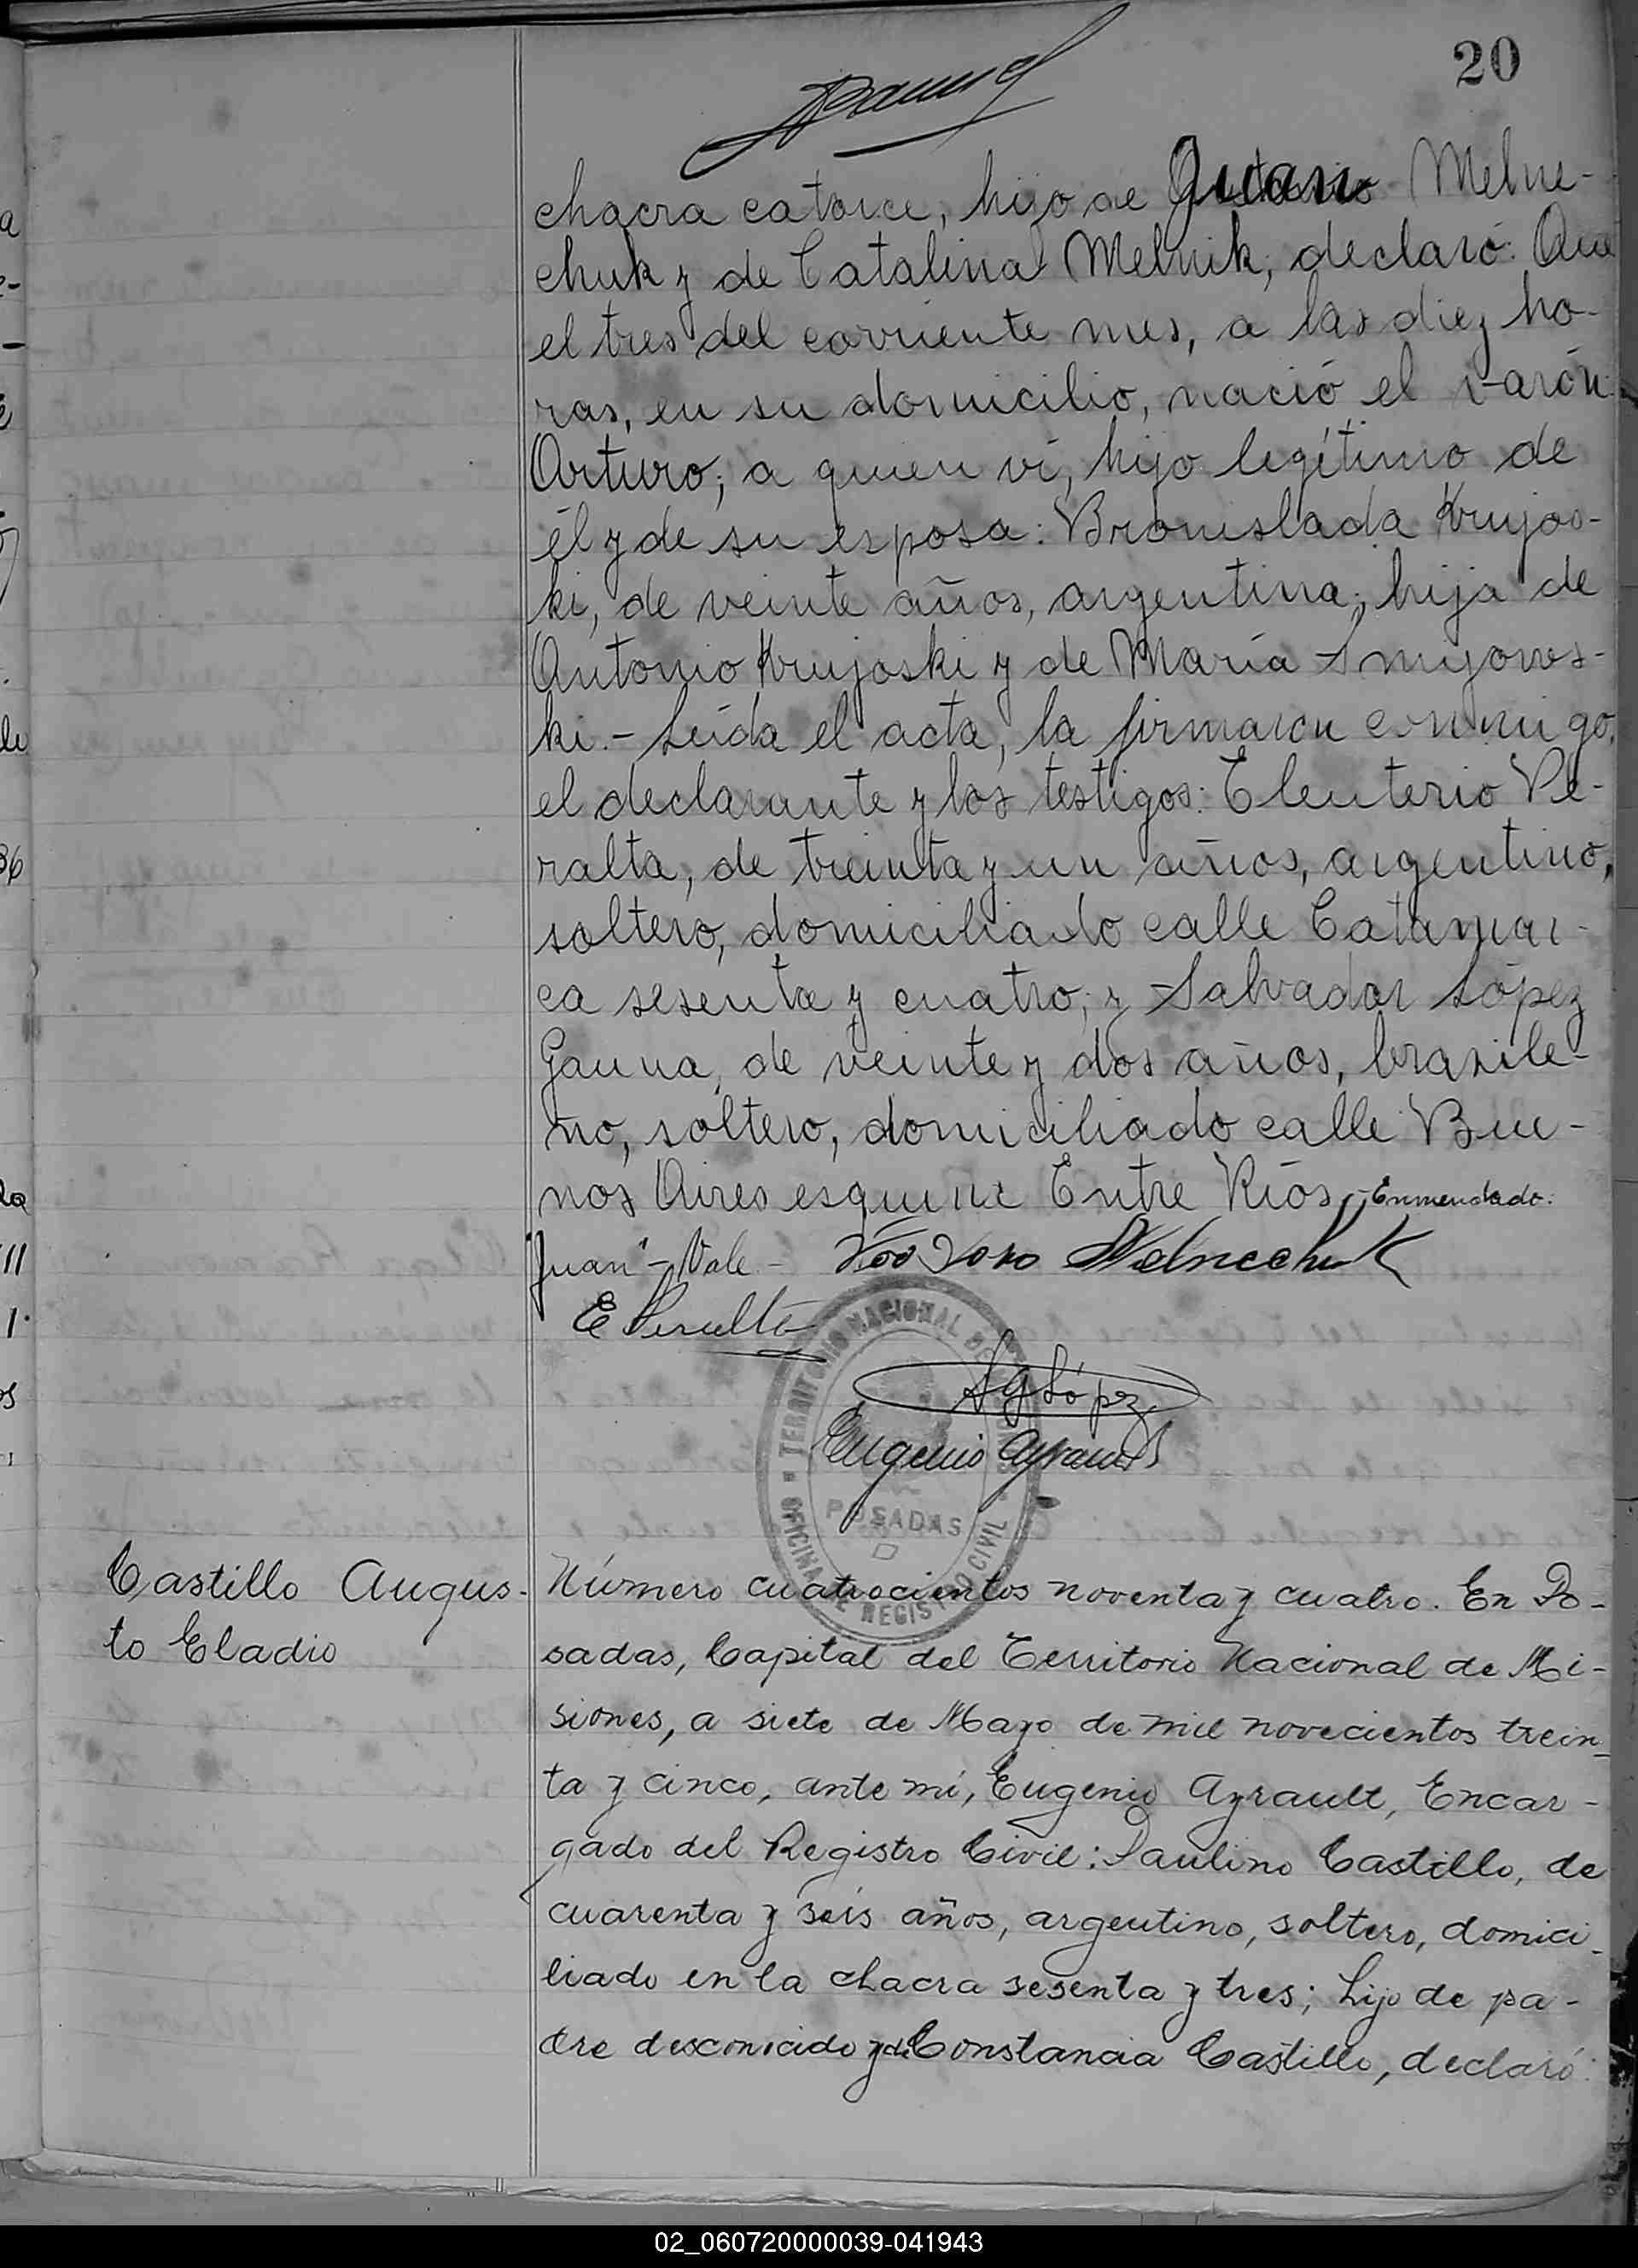 20
chacra catorce, hijo de Juan Melne-
chuk y de Catalina Melnik, declaró: Que
el tres del corriente mes, a las diez ho-
ras, en su domicilio, nació el varón
Arturo; a quien vi, hijo legítimo de
él y de su esposa: Bronislada Krujos-
ki, de veinte años, argentina, hija de
Antonio Krujoski y de María Smijows-
ki.- Leída el acta, la firmaron conmigo,
el declarante y los testigos: Eleuterio Pe-
ralta, de treinta y un años, argentino,
soltero, domiciliado calle Catamar-
ca sesenta y cuatro; y Salvador López
Gauna, de veinte y dos años, brasile-
ño, soltero, domiciliado calle Bue-
nos Aires esquina Entre Ríos.- Enmendado:
"Juan"- Vale.- Melnechuk
E Peralta
TERRITORIO NACIONAL DE MISIONES
S G López
Eugenio Ayrault
POSADAS
OFICINA DE REGISTRO CIVIL
Castillo Augus-
to Eladio
Número cuatrocientos noventa y cuatro. En Po-
sadas, Capital del Territorio Nacional de Mi-
siones, a siete de Mayo de mil novecientos trein-
ta y cinco, ante mí, Eugenio Ayrault, Encar-
gado del Registro Civil: Paulino Castillo, de
cuarenta y seis años, argentino, soltero, domici-
liado en la chacra sesenta y tres; hijo de pa-
dre desconocido y de Constancia Castillo, declaró:
02_060720000039-041943